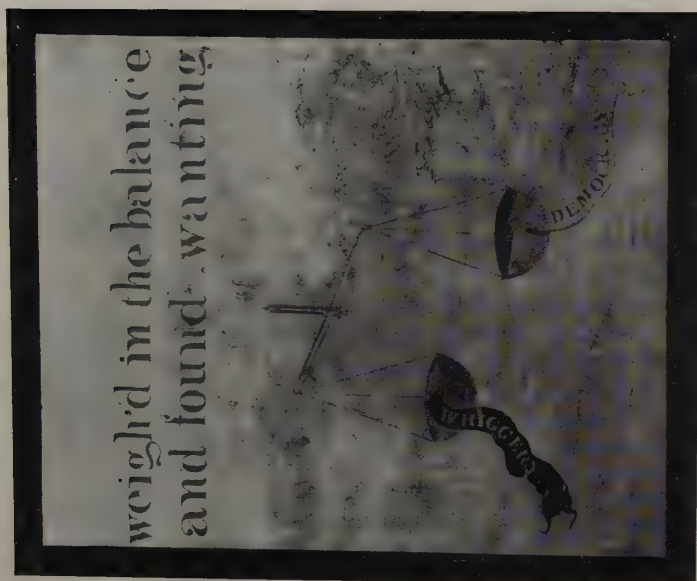 weigh'd in the balance
and found wanting
WHIGGERY
DEMOCRACY